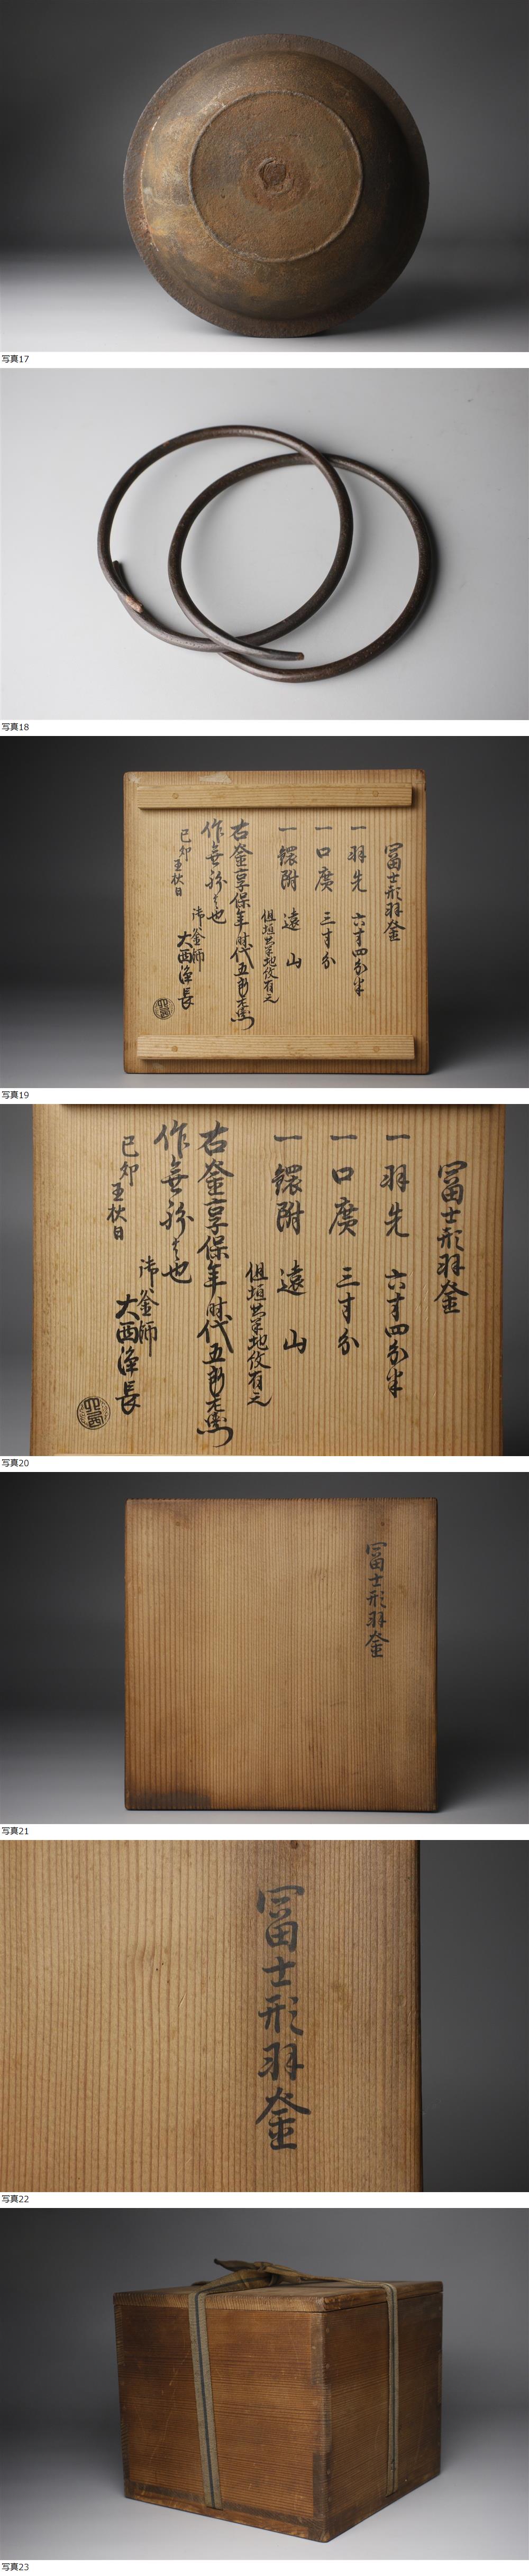 写真17
写真18
冨士形羽釜
一羽先 六寸四分半
一口廣 三寸分
一鐶附 遠山
但垣
地紋有之
右釜享保年時代五郎左衛門
作無
也
己卯
秋日
御釜師
大西浄長
写真19
冨士形羽釜
一羽先 六寸四分半
一口廣 三寸分
一鐶附 遠山
但垣
地紋有之
右釜享保年時代五郎左衛門
作無
也
己卯
秋日
御釜師
大西浄長
写真20
冨士形羽釜
写真21
冨士形羽釜
写真22
写真23